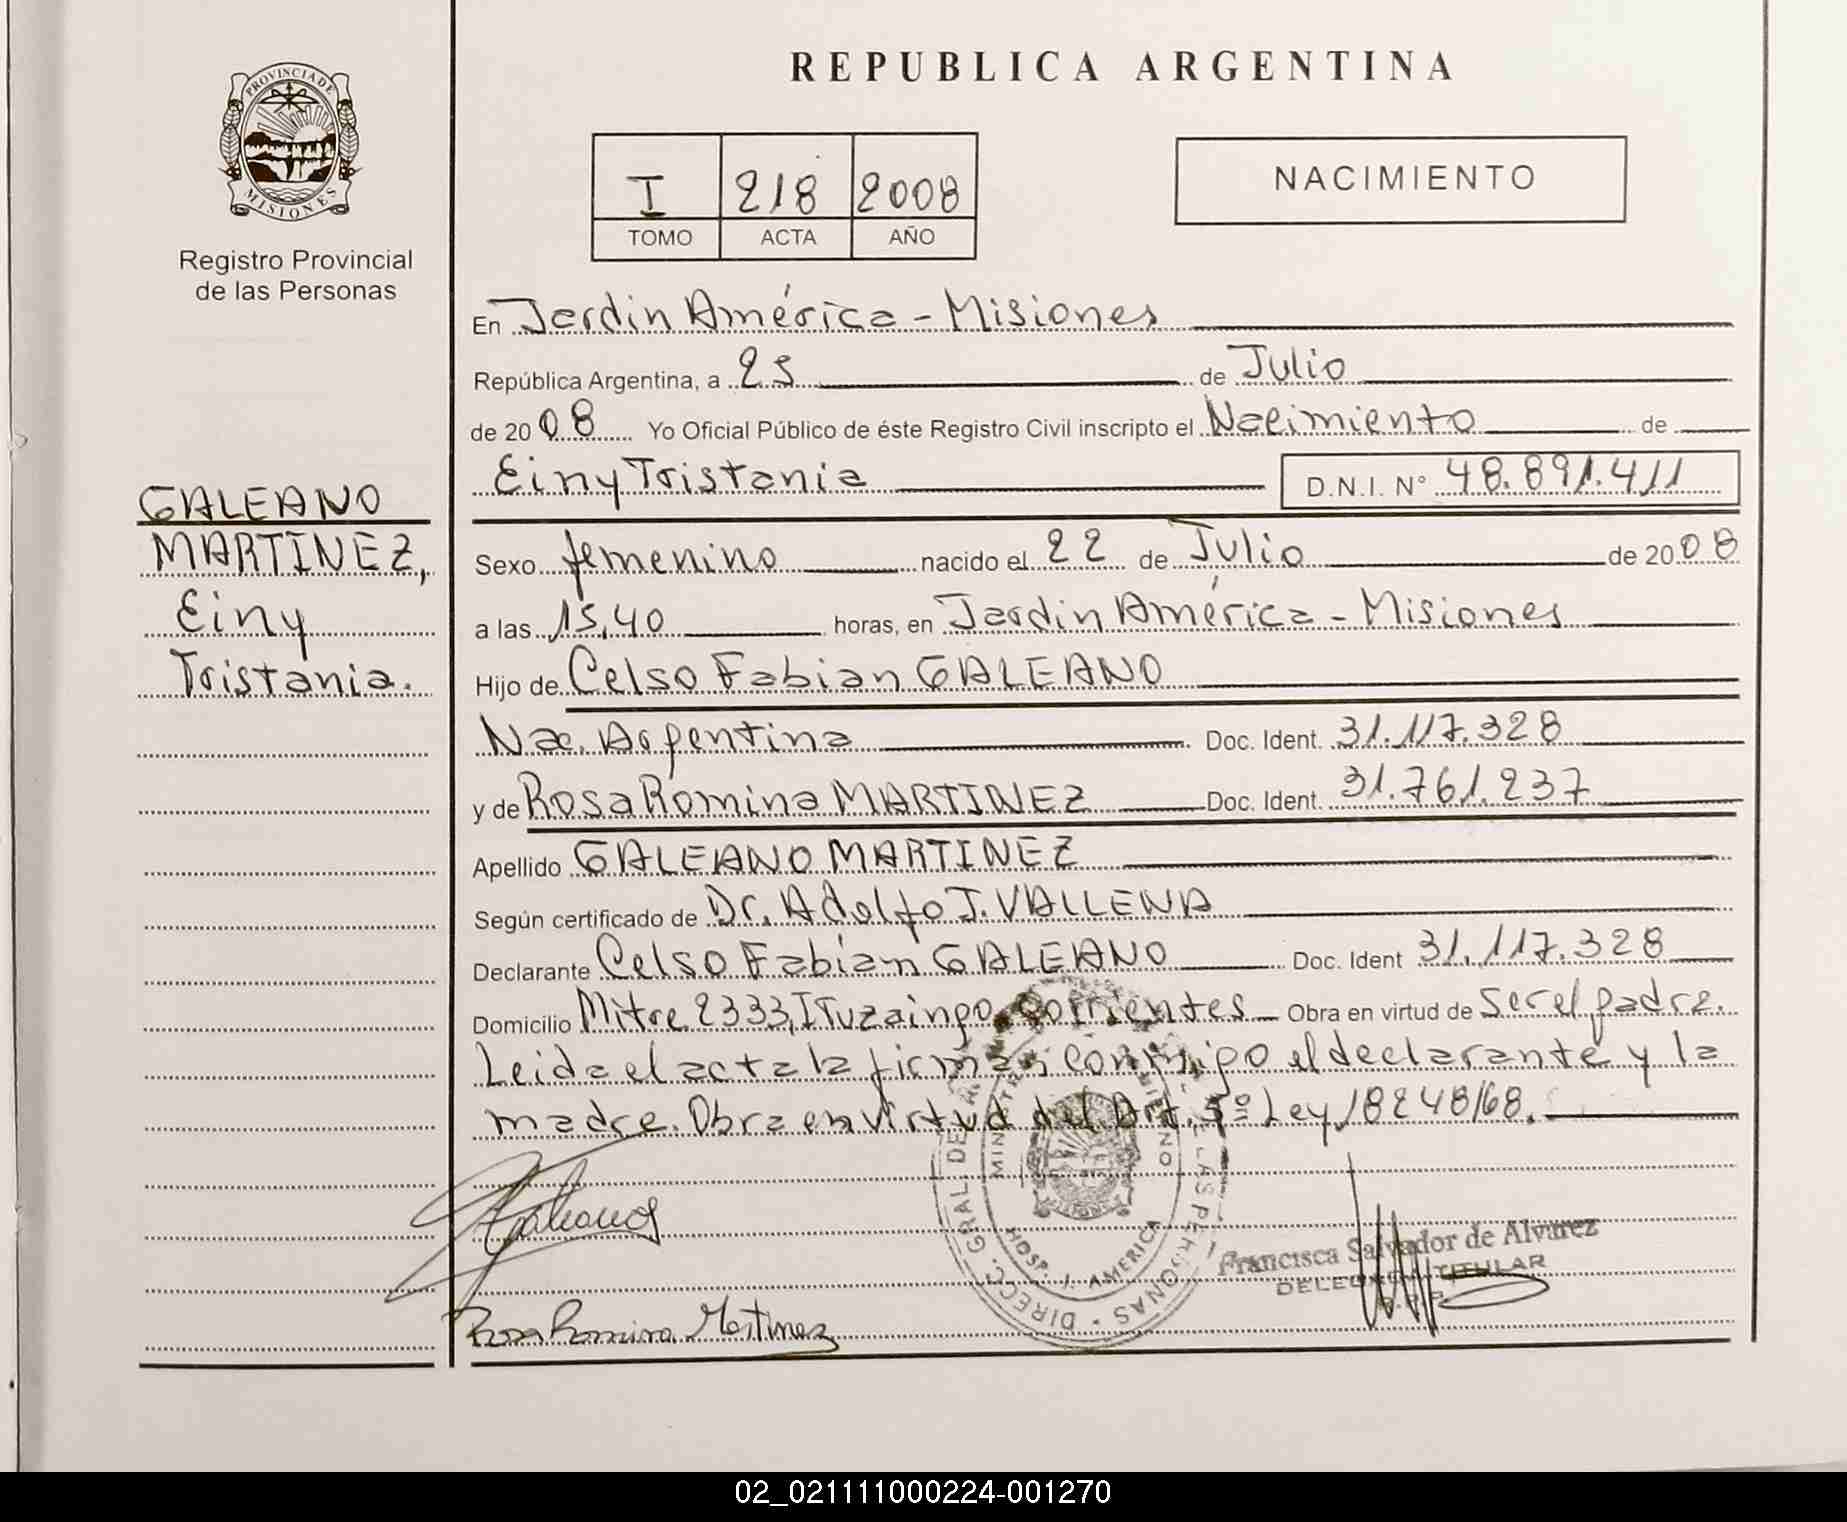 PROVINCIA DE
MISIONES
Registro Provincial
de las Personas
GALEANO
MARTINEZ,
Einy
Tristania.
REPUBLICA ARGENTINA
I 218 2008
TOMO ACTA AÑO
NACIMIENTO
En Jardin América - Misiones
República Argentina, a 25 de Julio
de 2008 Yo Oficial Público de éste Registro Civil inscripto el Nacimiento de
Einy Tristania D.N.I. N° 48.891.411
Sexo femenino nacido el 22 de Julio de 2008
a las 15,40 horas, en Jardin América - Misiones
Hijo de Celso Fabian GALEANO
Nac. Argentina Doc. Ident. 31.117.328
y de Rosa Romina MARTINEZ Doc. Ident. 31.761.237
Apellido GALEANO MARTINEZ
Según certificado de Dr. Adolfo J. VALLENA
Declarante Celso Fabian GALEANO Doc. Ident 31.117.328
Domicilio Mitre 2333, ITuzaingo, Corrientes Obra en virtud de Ser el padre.
Leida el acta la firman conmigo el declarante y la
madre. Obra en virtud del Art. 5º Ley 18248/68.
Galeano
Rosa Romina Martinez
DIRECC. GRAL DE LAS PERSONAS
HOSP. J. AMERICA
Francisca Salvador de Alvarez
DELEGADA TITULAR
02_021111000224-001270